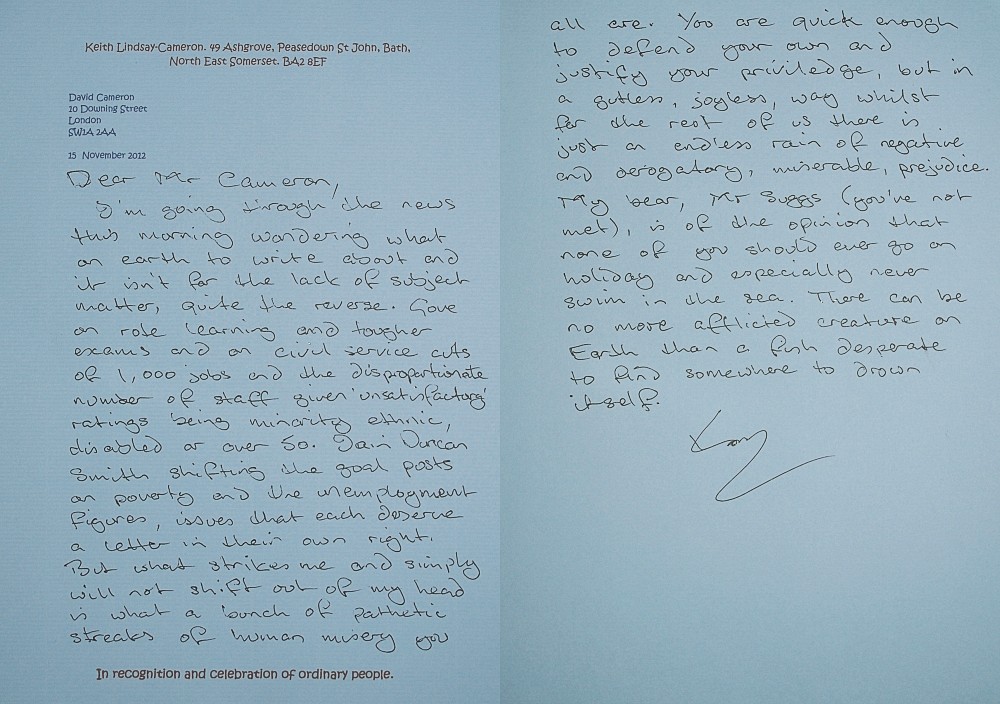 Keith Lindsay-Cameron. 49 Ashgrove, Peasedown St John, Bath,
North East Somerset. BA2 8EF
David Cameron
10 Downing Street
London
SW1A 2AA
15 November 2012
Dear Mr Cameron,
I'm going through the news
this morning wondering what
on earth to write about and
it isn't for the lack of subject
matter, quite the reverse. Gove
on rote learning and tougher
exams and on civil service cuts
of 1,000 jobs and the disproportionate
number of staff given 'unsatisfactory'
ratings being minority ethnic,
disabled or over 50. Iain Duncan
Smith shifting the goal posts
on poverty and the unemployment
figures, issues that each deserve
a letter in their own right.
But what strikes me and simply
will not shift out of my head
is what a bunch of pathetic
streaks of human misery you
In recognition and celebration of ordinary people.
all are. You are quick enough
to defend your own and
justify your priviledge, but in
a gutless, joyless, way whilst
for the rest of us there is
just an endless rain of negative
and derogatory, miserable, prejudice.
My bear, Mr Suggs (you've not
met), is of the opinion that
none of you should ever go on
holiday and especially never
swim in the sea. There can be
no more afflicted creature on
Earth than a fish desperate
to find somewhere to drown
itself.